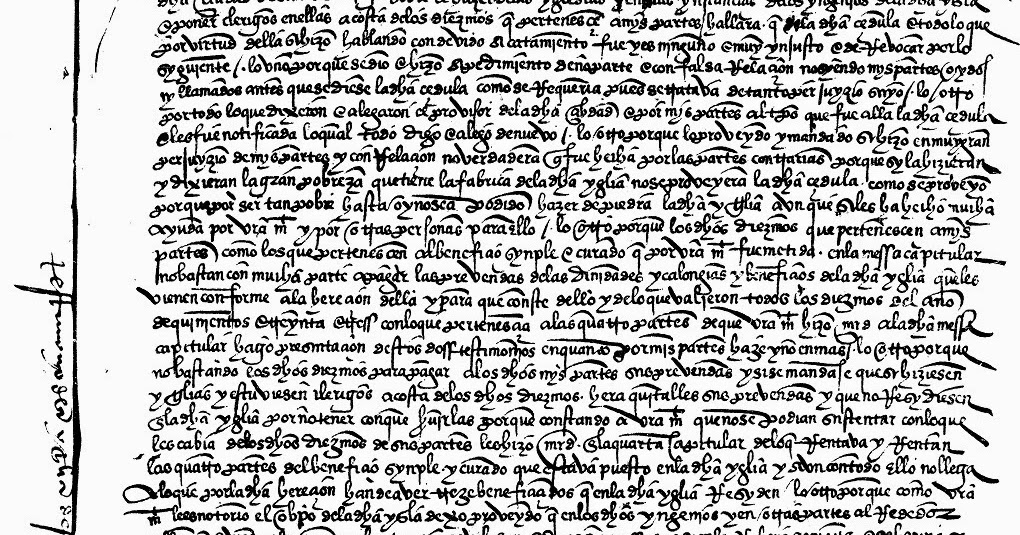 e poner clerigos en ellas a costa de los diezmos q̃ pertenesçẽ a mys partes hallara q̃ la dha çedula e todo lo que
por virtud della se hizo hablando con devido acatamiento fue y es ninguno e muy ynjusto e de Revocar por lo
syguiente /. lo uno porque se dio e hizo a pedimiento de no parte e con falsa Relaçion no syendo mys partes oydos
ny llamados antes que se diese la dha çedula como se Requeria pues se tratava de tanto perjuyzio suyo /. lo otro
por todo lo que dixeron e alegaron el provisor de la dha abdad e por mys partes al tpo que fue alla la dha çedula
e les fue notificada lo qual todo digo e alego de nuevo /. lo otro porque lo proveydo y mandado se hizo en muy gran
perjuyzio de mys partes y con Relaçion no verdadera q̃ fue hecha por las partes contrarias porque sy la hizieran
y dixieran la gran pobreza que tiene la fabrica de la dha yglia no se proveyera la dha çedula como se proveyo
porque por ser tan pobre hasta oy no se a podido hazer de piedra la dha yglia aunque se les ha hecho mucha
ayuda por vra mt y por otras personas para ello /. lo otro porque los dhos diezmos que pertenesçen a mys
partes como los que pertenesçen al benefiçio synple e curado q̃ por vra mt fue metida en la messa capitular
no bastan con mucha parte a pagar las prevendas de las dinidades y calongias y benefiçios de la dha yglia que les
vienen conforme a la hereçion della y para que conste dello y de lo que valieron todos los diezmos del año
de quinientos e treynta e tres con lo que pertenesçia a las quatro partes de que vra mt hizo mrd a la dha messa
capitular hago presentaçion destos dos testimonios en quanto por mis partes haze y no en mas /. lo otro porque
no bastando los dhos diezmos para pagar a los dhos mys partes sus prevendas y si se mandase que se hiziesen
yglias y estuviesen clerigos a costa de los dhos diezmos hera quitalles sus prevendas y que no Resydiesen
en la dha yglia por no tener con que servirlas porque constando a vra mt que no se podian sustentar con lo que
les cabia de los dhos diezmos de sus partes les hizo mrd e la quarta capitular de lo q̃ Rentava y Rentan
las quatro partes del benefiçio synple y curado que estava puesto en la dha yglia y aun con todo ello no llega
a lo que por la dha hereçion han de aver treze benefiçiados q̃ en la dha yglia Resyden lo otro porque como vra
mt les es notorio el obpo de la dha yglia de Xo proveydo q̃ en los dhos yngenios y en otras partes al Rededor